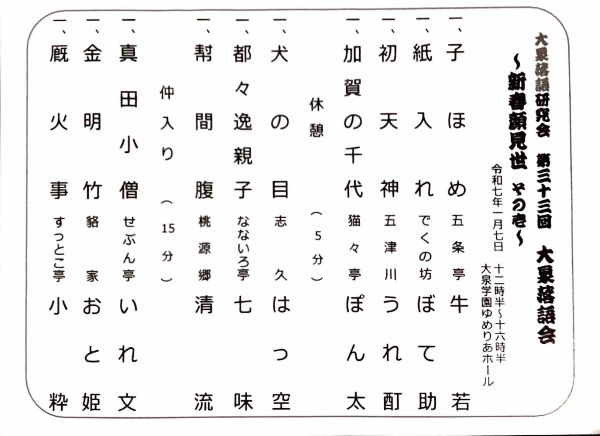 大泉落語研究会　第三十三回　大泉落語会
～新春顔見世　その壱～
令和七年一月七日　十二時半～十六時半
大泉学園ゆめりあホール
一、子ほめ　五条亭　牛若
一、紙入れ　でくの坊　ぼて助
一、初天神　五津川　うれ酊
一、加賀の千代　猫々亭　ぽん太
休憩　（５分）
一、犬の目　志久　はっ空
一、都々逸親子　なないろ亭　七味
一、幇間腹　桃源郷　清流
仲入り　（15分）
一、真田小僧　せぶん亭　いれ文
一、金明竹　貉家　おと姫
一、厩火事　すっとこ亭　小粋